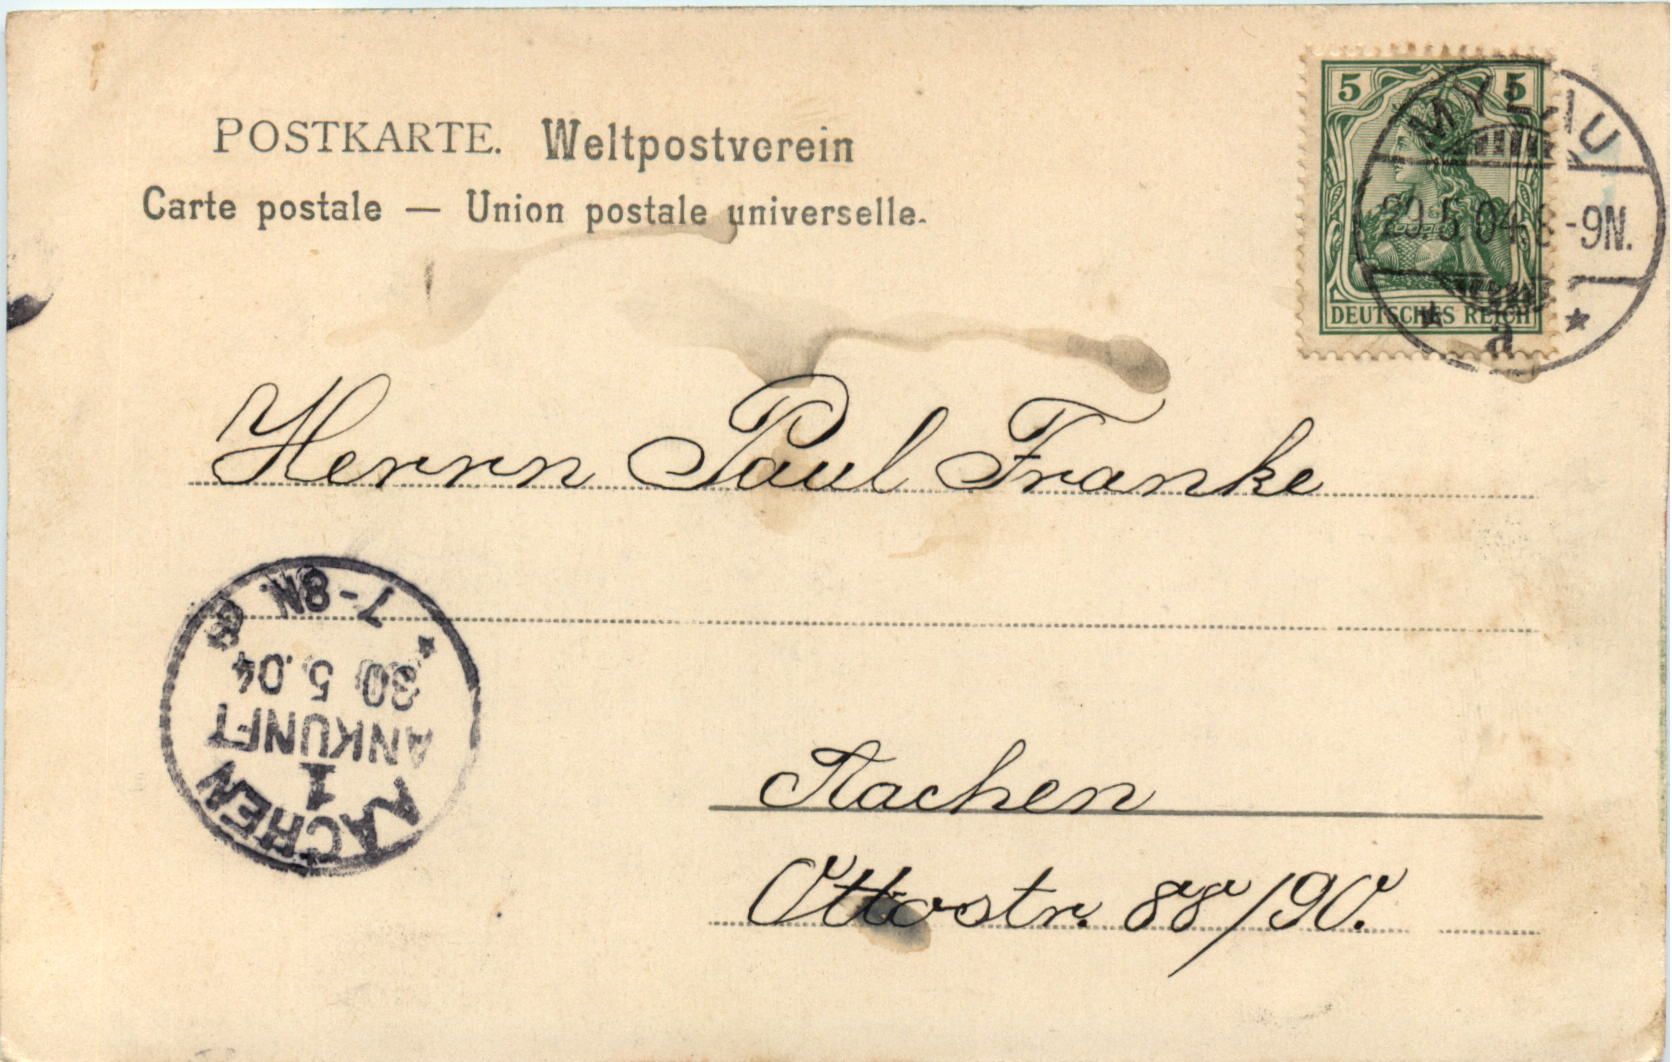 POSTKARTE. Weltpostverein
Carte postale — Union postale universelle.
5 5
DEUTSCHES REICH
MYLAU
29.5.04.8-9N.
* a *
Herrn Paul Franke
Aachen
Ottostr. 88/90.
AACHEN
1
ANKUNFT
30 5.04
* 7-8N.